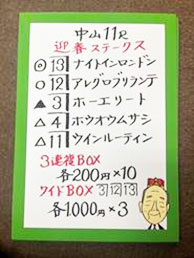 中山11R
迎春ステークス
◎13 ナイトインロンドン
○12 アレグロブリランテ
▲3 ホーエリート
△4 ホウオウムサシ
△11 ウインルーティン
3連複BOX
各200円×10
ワイドBOX 3 12 13
各1000円×3